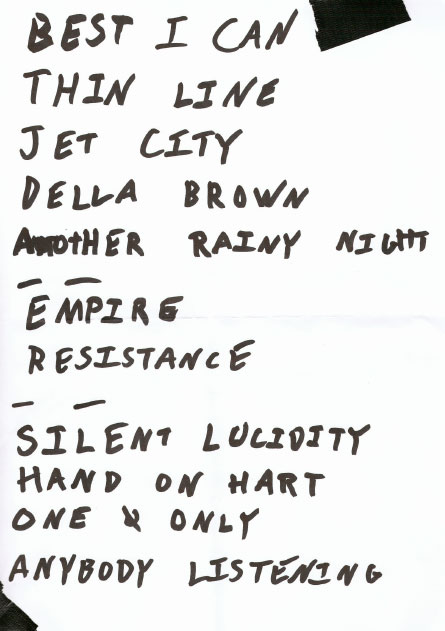 BEST I CAN
THIN LINE
JET CITY
DELLA BROWN
ANOTHER RAINY NIGHT
— —
EMPIRE
RESISTANCE
— —
SILENT LUCIDITY
HAND ON HART
ONE & ONLY
ANYBODY LISTENING